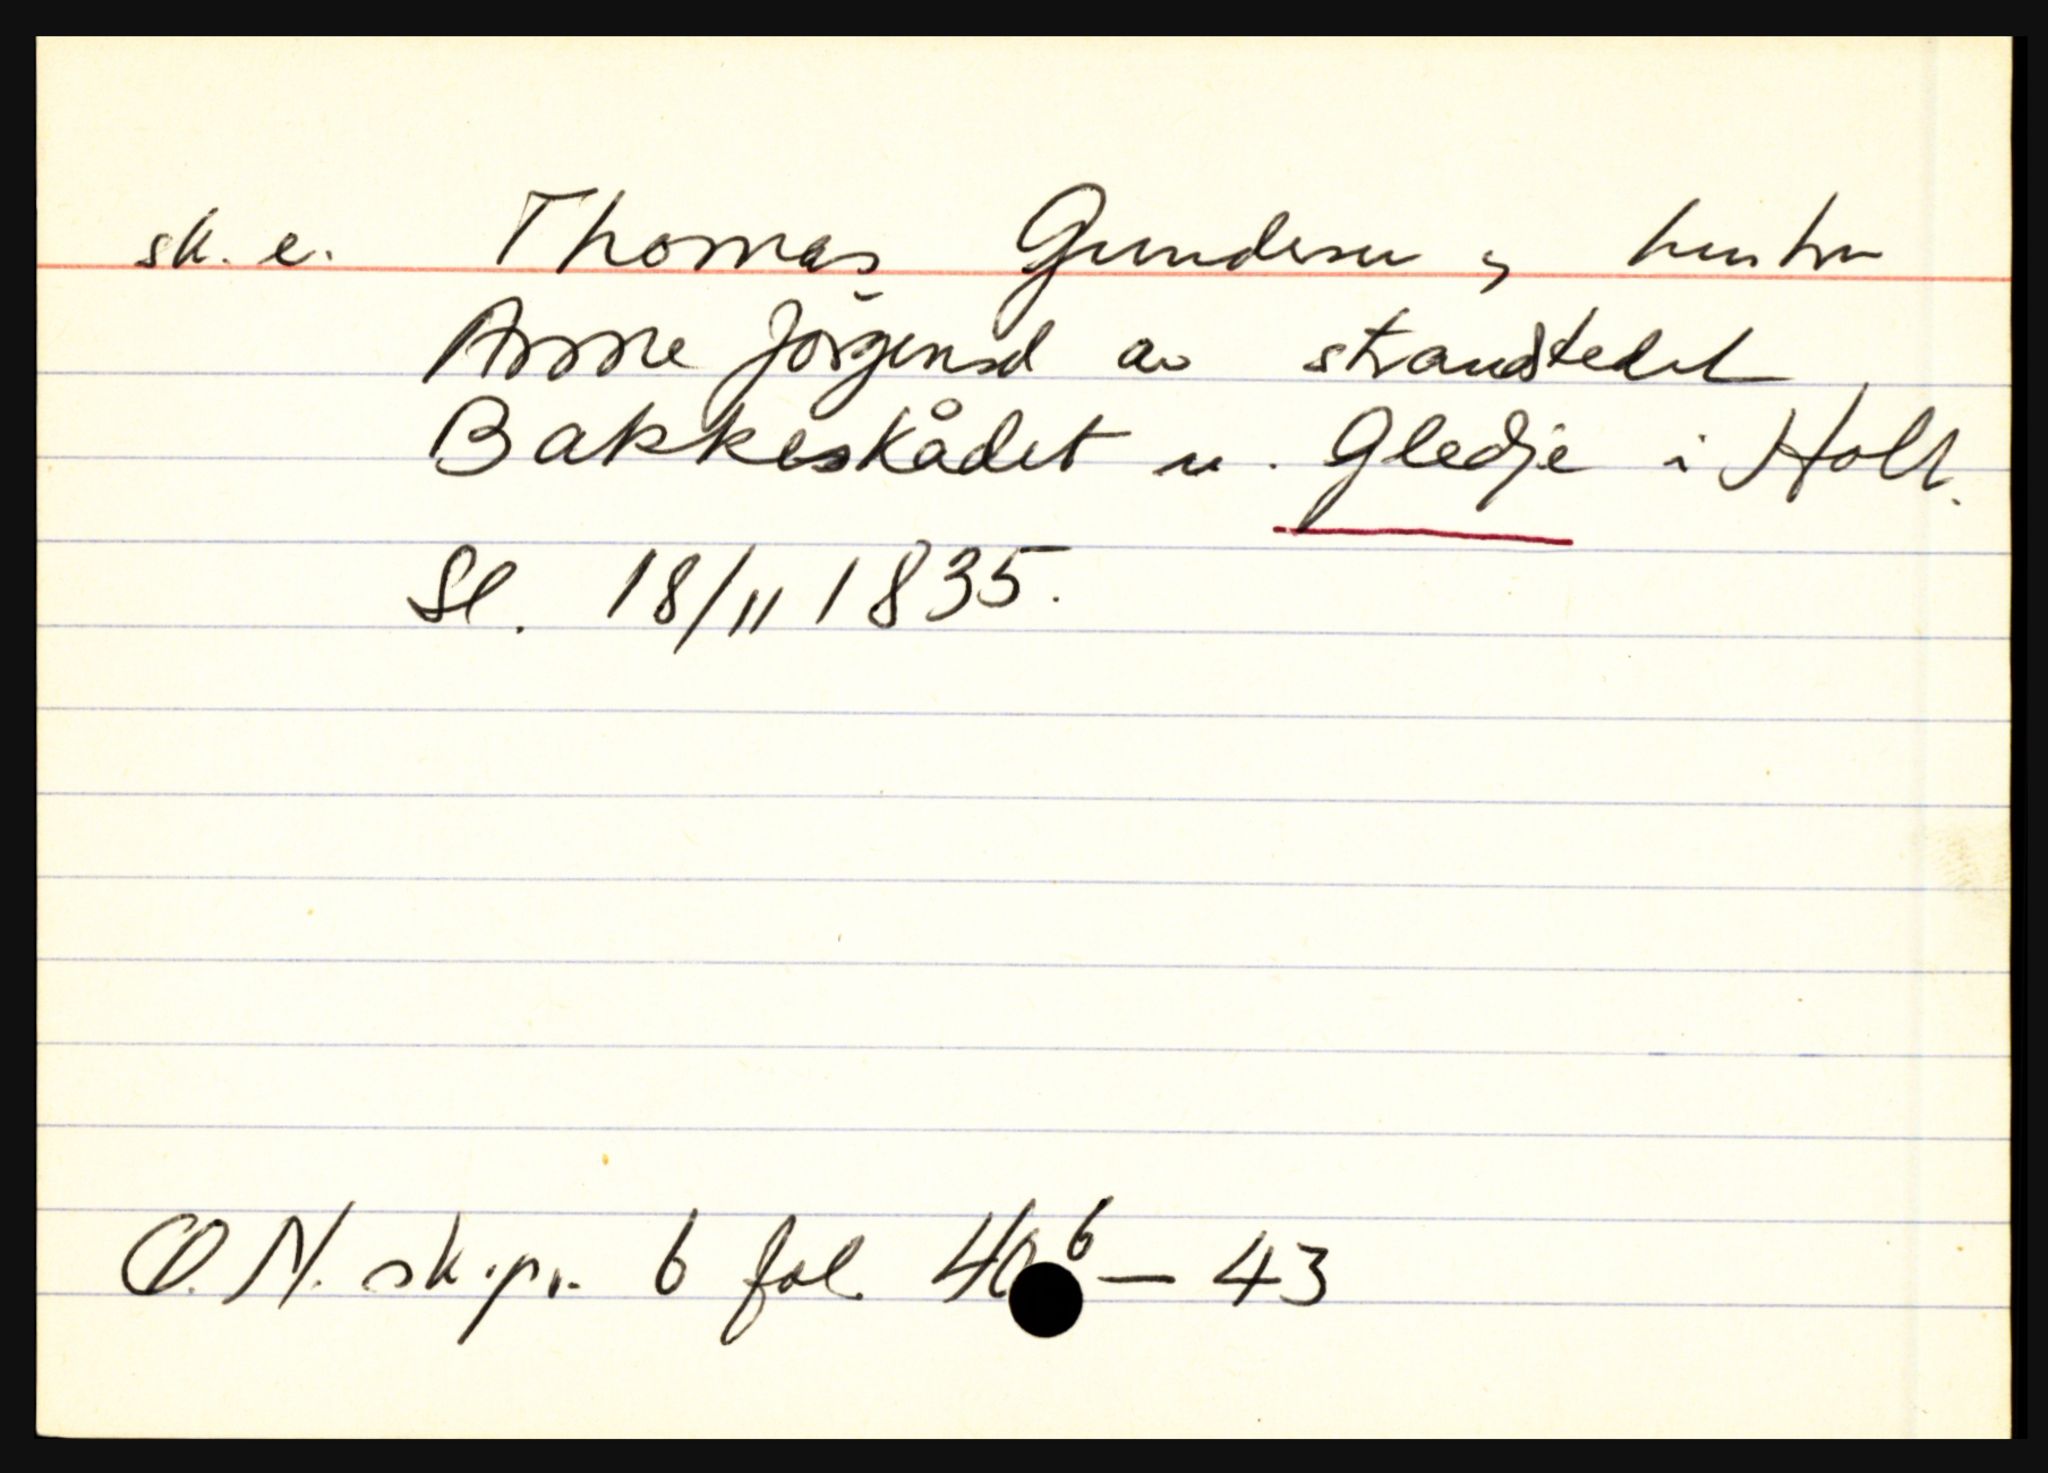 sk. e. Thomas Gundersen og hustru
Anne Jörgensd av strandstedet
Bakkeskådet u. Gledje i Holt.
Sl. 18/11 1835.
Ø. N. sk.pr. 6 fol 40b — 43